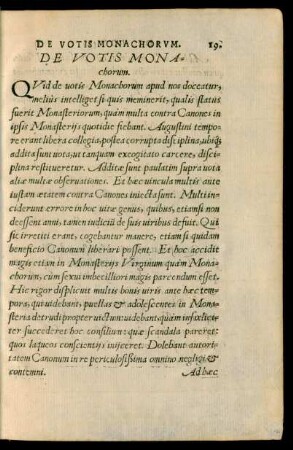 DE VOTIS MONACHORVM. 19.
DE VOTIS MONA-
chorum.
QVid de uotis Monachorum apud nos doceatur,
meliùs intelliget si quis meminerit, qualis status
fuerit Monasteriorum, quàm multa contra Canones in
ipsis Monasterijs quotidie fiebant. Augustini tempo
re erant libera collegia, postea corrupta disciplina, ubiq;
addita sunt uota, ut tanquam excogitato carcere, disci
plina restitueretur. Additæ sunt paulatim supra uota
aliæ multæ obseruationes. Et hæc uincula multis ante
iustam ætatem contra Canones iniecta sunt. Multi in-
ciderunt errore in hoc uitæ genus, quibus, etiamsi non
deessent anni, tamen iudiciũ de suis uiribus defuit. Qui
sic irretiti erant, cogebantur manere, etiam si quidam
beneficio Canonum liberari possent. Et hoc accidit
magis etiam in Monasterijs Virginum quàm Mona-
chorum, cùm sexui imbecilliori magis parcendum esset.
Hic rigor displicuit multis bonis uiris ante hæc tem-
pora, qui uidebant, puellas & adolescentes in Mona-
steria detrudi propter uictum: uidebant, quàm infœlici-
ter succederet hoc consilium: quæ scandala pareret:
quos laqueos conscientijs inijceret. Dolebant autori-
tatem Canonum in re periculosißima omnino negligi &
contemni. Ad hæc